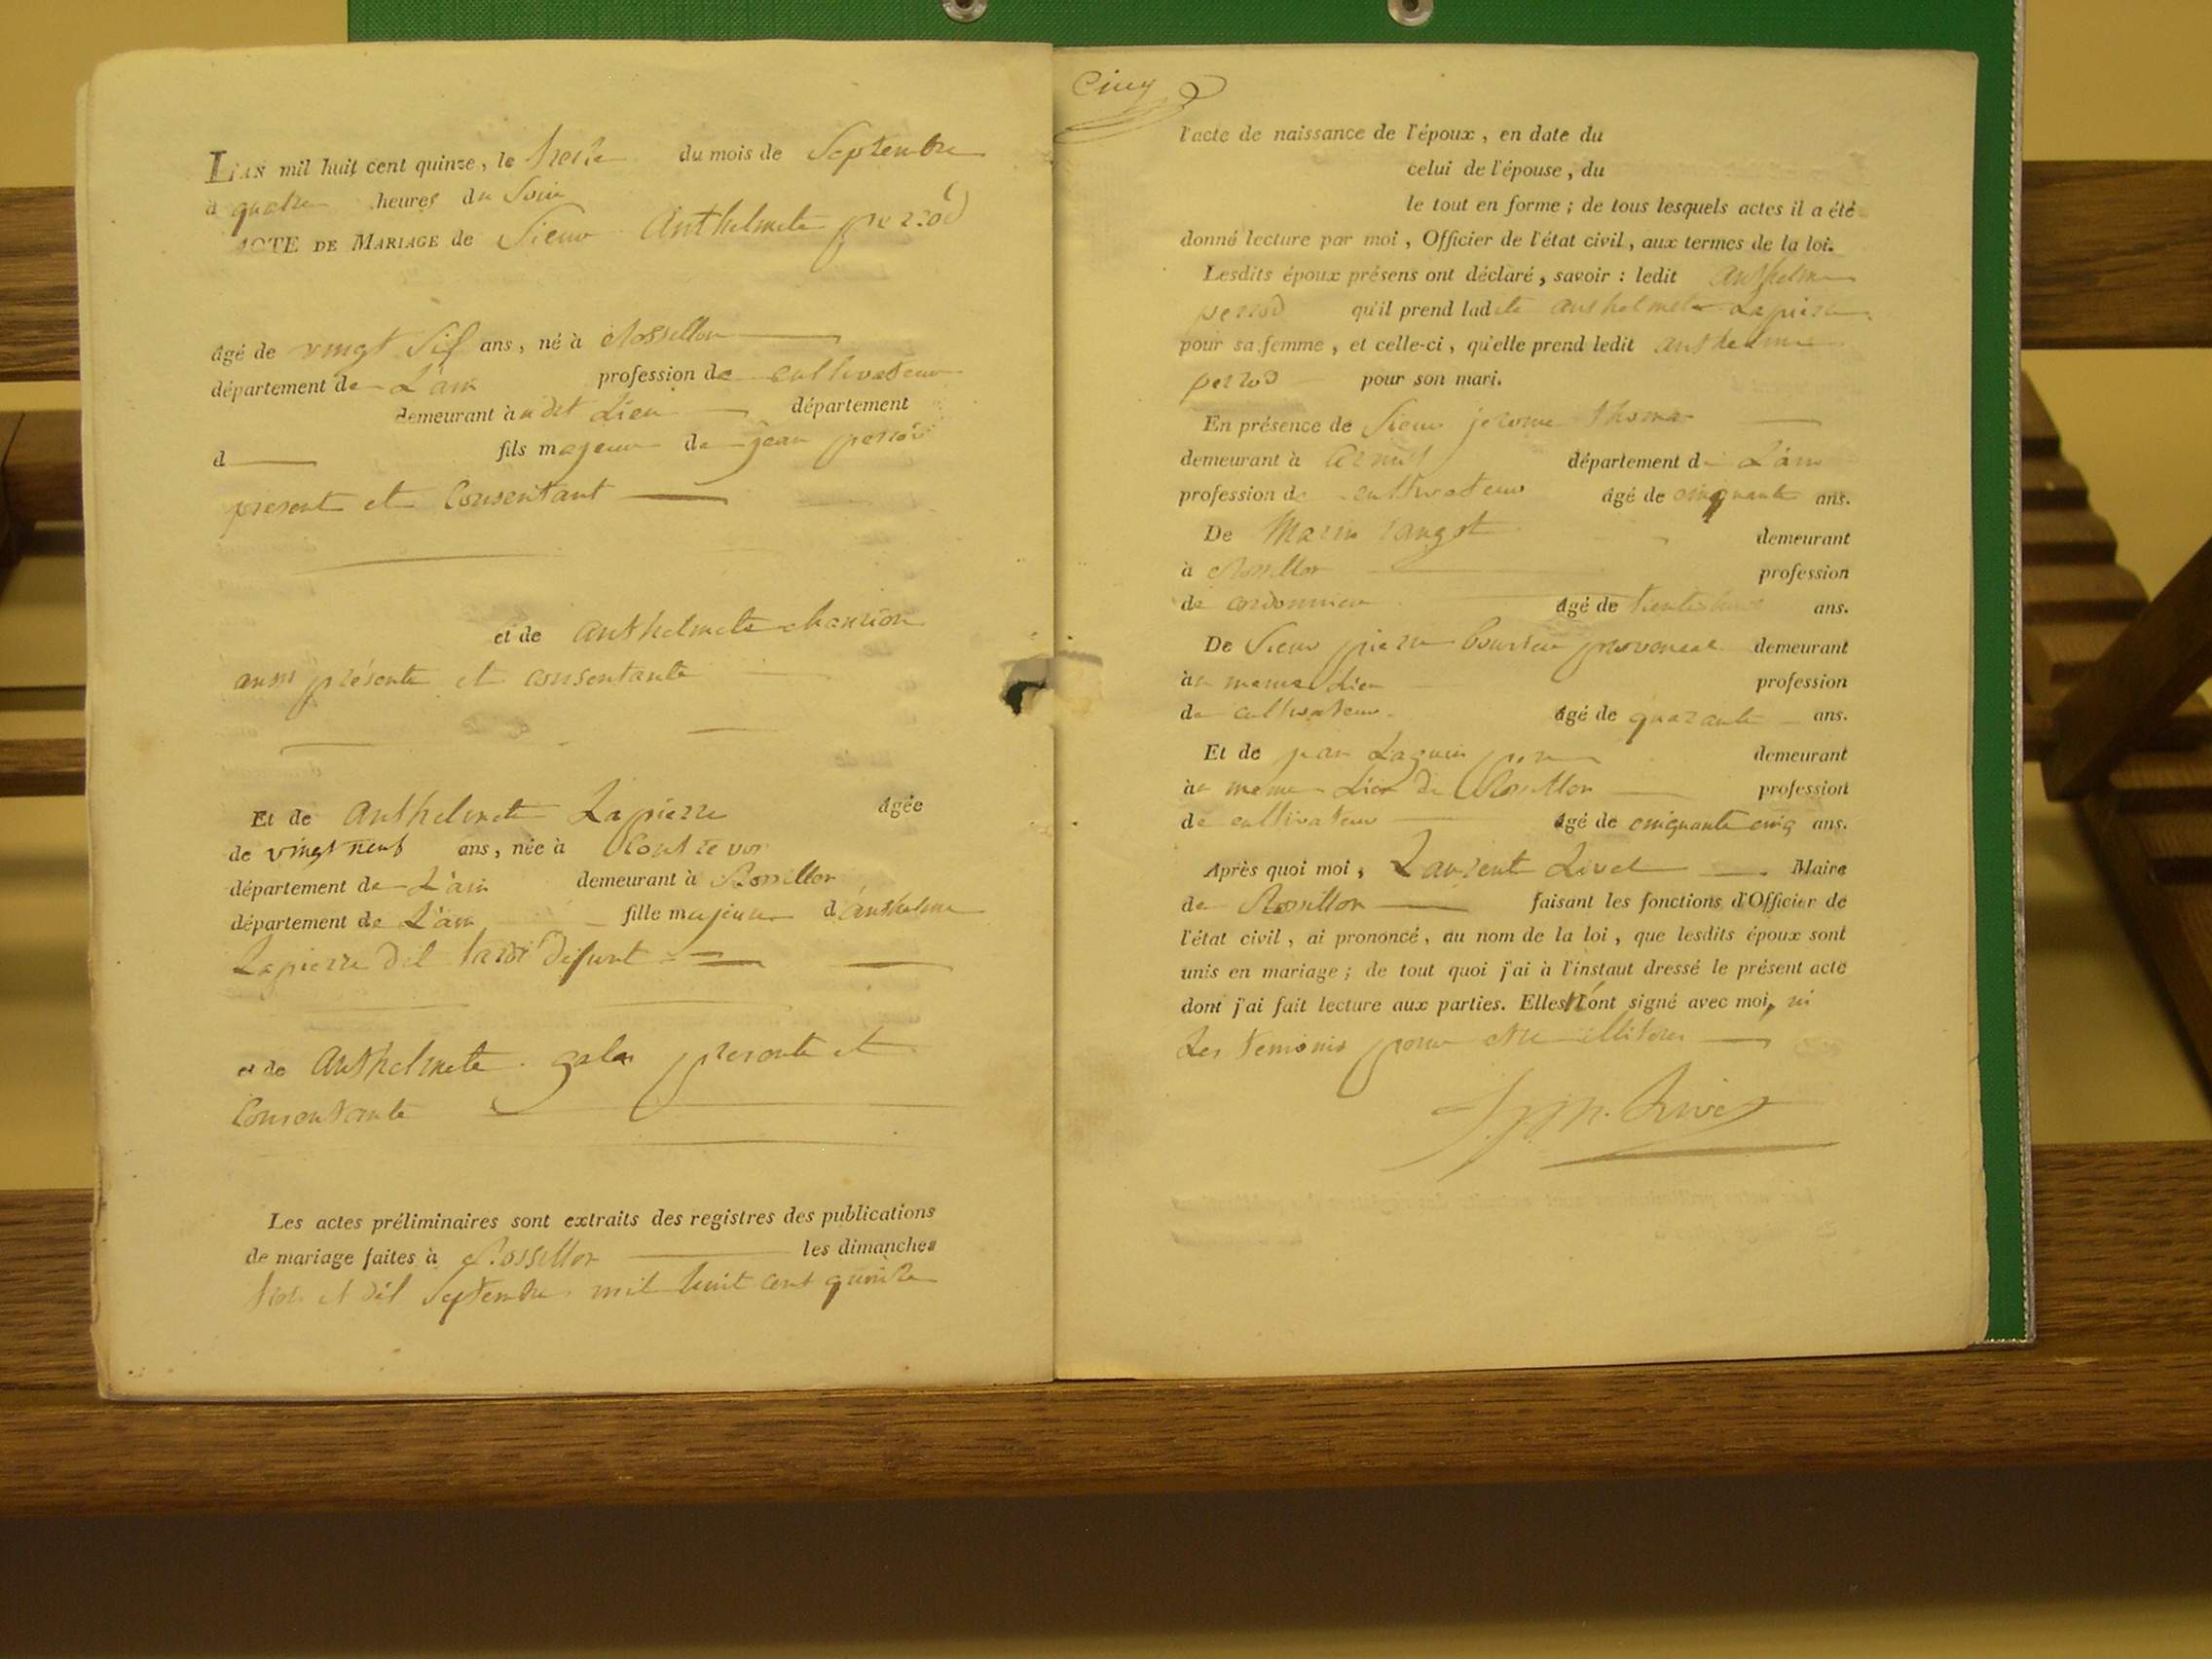 L'AN mil huit cent quinze, le treize du mois de Septembre
à quatre heures du Soir
ACTE DE MARIAGE de Sieur Anthelmete perrod
âgé de vingt Six ans, né à Rossillon
département de L'ain profession de cultivateur
demeurant àudit Lieu département
d fils majeur de jean perrod
present et Consentant
et de anthelmete
aussi présente et consentante
Et de anthelmete Lapierre âgée
de vingt neuf ans, née à Contrevoz
département de L'ain demeurant à Rossillon
département de L'ain fille majeure d'anthelme
Lapierre dit défunt
et de Anthelmete presente et
Consentante
Les actes préliminaires sont extraits des registres des publications
de mariage faites à Rossillon les dimanches
trois et dix Septembre mil huit cent quinze
Cinq
l'acte de naissance de l'époux, en date du
celui de l'épouse, du
le tout en forme; de tous lesquels actes il a été
donné lecture par moi, Officier de l'état civil, aux termes de la loi.
Lesdits époux présens ont déclaré, savoir: ledit anthelme
perrod qu'il prend ladite anthelmete Lapierre
pour sa femme, et celle-ci, qu'elle prend ledit anthelme
perrod pour son mari.
En présence de Sieur jerome thomas
demeurant à département de L'ain
profession de cultivateur âgé de cinquante ans.
De Marin demeurant
à Rossillon profession
de cordonnier âgé de ans.
De Sieur pierre provencal demeurant
àu meme Lieu profession
de cultivateur âgé de quarante ans.
Et de jean demeurant
àu meme Lieu de Rossillon profession
de cultivateur âgé de cinquante cinq ans.
Après quoi moi, Laurent Livet Maire
de Rossillon faisant les fonctions d'Officier de
l'état civil, ai prononcé, au nom de la loi, que lesdits époux sont
unis en mariage; de tout quoi j'ai à l'instant dressé le présent acte
dont j'ai fait lecture aux parties. Elles n'ont signé avec moi, ni
Les temoins pour etre illiteres